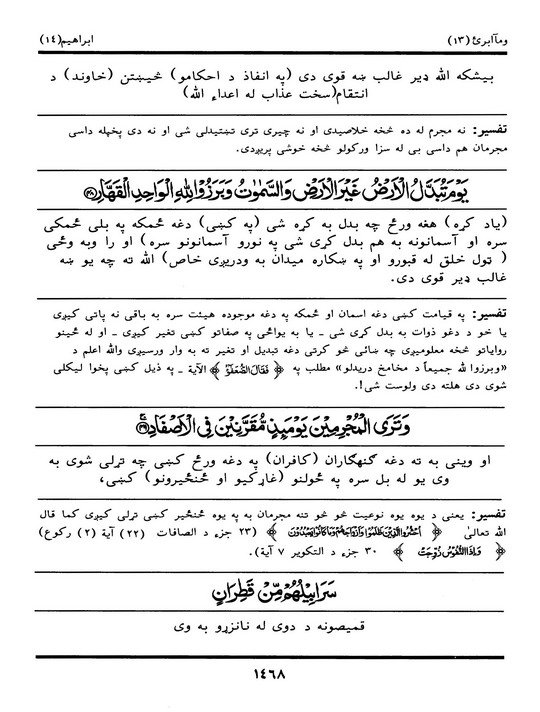 ابراهیم(١٤)
ومآابرئ (١٣)
بیشکه الله ډیر غالب ښه قوی دی (په انفاذ د احکامو) څیښتن (خاوند) د
انتقام(سخت عذاب له اعداء الله)
تفسیر: نه مجرم له ده څخه خلاصیدی او نه چیری تری تښتیدلی شی او نه دی پخپله داسی
مجرمان هم داسی بی له سزا ورکولو څخه خوشی پریږدی.
يَوْمَ تُبَدَّلُ الْاَرْضُ غَيْرَ الْاَرْضِ وَالسَّمٰوٰتُ وَبَرَزُوْا لِلّٰهِ الْوَاحِدِ الْقَهَّارِ ﴿٤٨﴾
(یاد کړه) هغه ورځ چه بدل به کړه شی (په کښی) دغه ځمکه په بلی ځمکی
سره او آسمانونه به هم بدل کړی شی په نورو آسمانونو سره) او را وبه وځی
( ټول خلق له قبورو او په ښکاره میدان به ودریږی خاص) الله ته چه یو ښه
غالب ډیر قوی دی.
تفسیر: په قیامت کښی دغه اسمان او ځمکه په دغه موجوده هیئت سره به باقی نه پاتی کیږی
یا خو د دغو ذوات به بدل کړی شی ـ یا به یواځی په صفاتو کښی تغیر کیږی ـ او له ځینو
روایاتو څخه معلومیږی چه ښائی څو کرتی دغه تبدیل او تغیر ته به وار ورسیږی والله اعلم د
«وبرزوا لله جمیعاً د مخامخ دریدلو» مطلب په ﴿ فَقَالَ الضُّعَفٰٓؤُا ﴾ الآیة ـ په ذیل کښی پخوا لیکلی
شوی دی هلته دی ولوست شی!.
وَتَرَى الْمُجْرِمِيْنَ يَوْمَئِذٍ مُّقَرَّنِيْنَ فِى الْاَصْفَادِ ﴿٤٩﴾
او وینی به ته دغه ګنهګاران (کافران) په دغه ورځ کښی چه تړلی شوی به
وی یو له بل سره په ځولنو (غاړکیو او ځنځیرونو) کښی،
تفسیر: یعنی د یوه یوه نوعیت څو څو تنه مجرمان به په یوه ځنځیر کښی تړلی کیږی کما قال
الله تعالیٰ ﴿ اُحْشُرُوا الَّذِيْنَ ظَلَمُوْا وَاَزْوَاجَهُمْ وَمَا كَانُوْا يَعْبُدُوْنَ ﴾ (٢٣ جزء د الصافات (٢٢) آیة (٢) رکوع)
﴿ وَاِذَا النُّفُوْسُ زُوِّجَتْ ﴾ ٣٠ جزء د التکویر ٧ آیة).
سَرَابِيْلُهُمْ مِّنْ قَطِرَانٍ
قمیصونه د دوی له نانزړو به وی
١٤٦٨